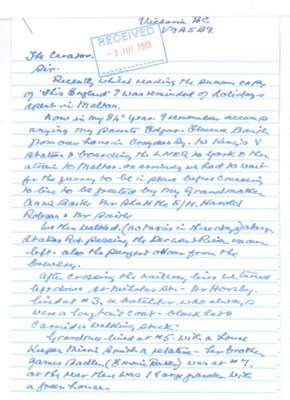 Victoria BC
V9A5B9
RECEIVED
- 3 JUL 2001
The Curator.
Sir.
Recently whilst reading the summer copy
of 'This England' I was reminded of holidays
spent in Malton.
Now in my 84th year I remember accom
anying my parents Edgar & Florence Smith
from our home in Croydon to Kings X
Station & boarding the LNER to York & then
a train to Malton. on arrival we had to wait
for the gurney to be in place before crossing
the line to be greeted by my Grandmother
Annie Smith Mr the S/M. Harold
Robson & Mr Smith
We then walked (no taxis in those days) along
Station Rd passing the Derwent River on our
left. also the pungent odour from the
brewery.
After crossing the railway lines we turned
left down St Nicholas St. Mr Horsley
lived at # 3. a batchelor who always
wore a long tail coat - black hat &
carried a walking stick -
Grandma lived at #5. with a house
keeper Minnie Smith a relative - her brother
James (Emmie) was at # 7.
at the rear there was 1 large garden with
a green house -